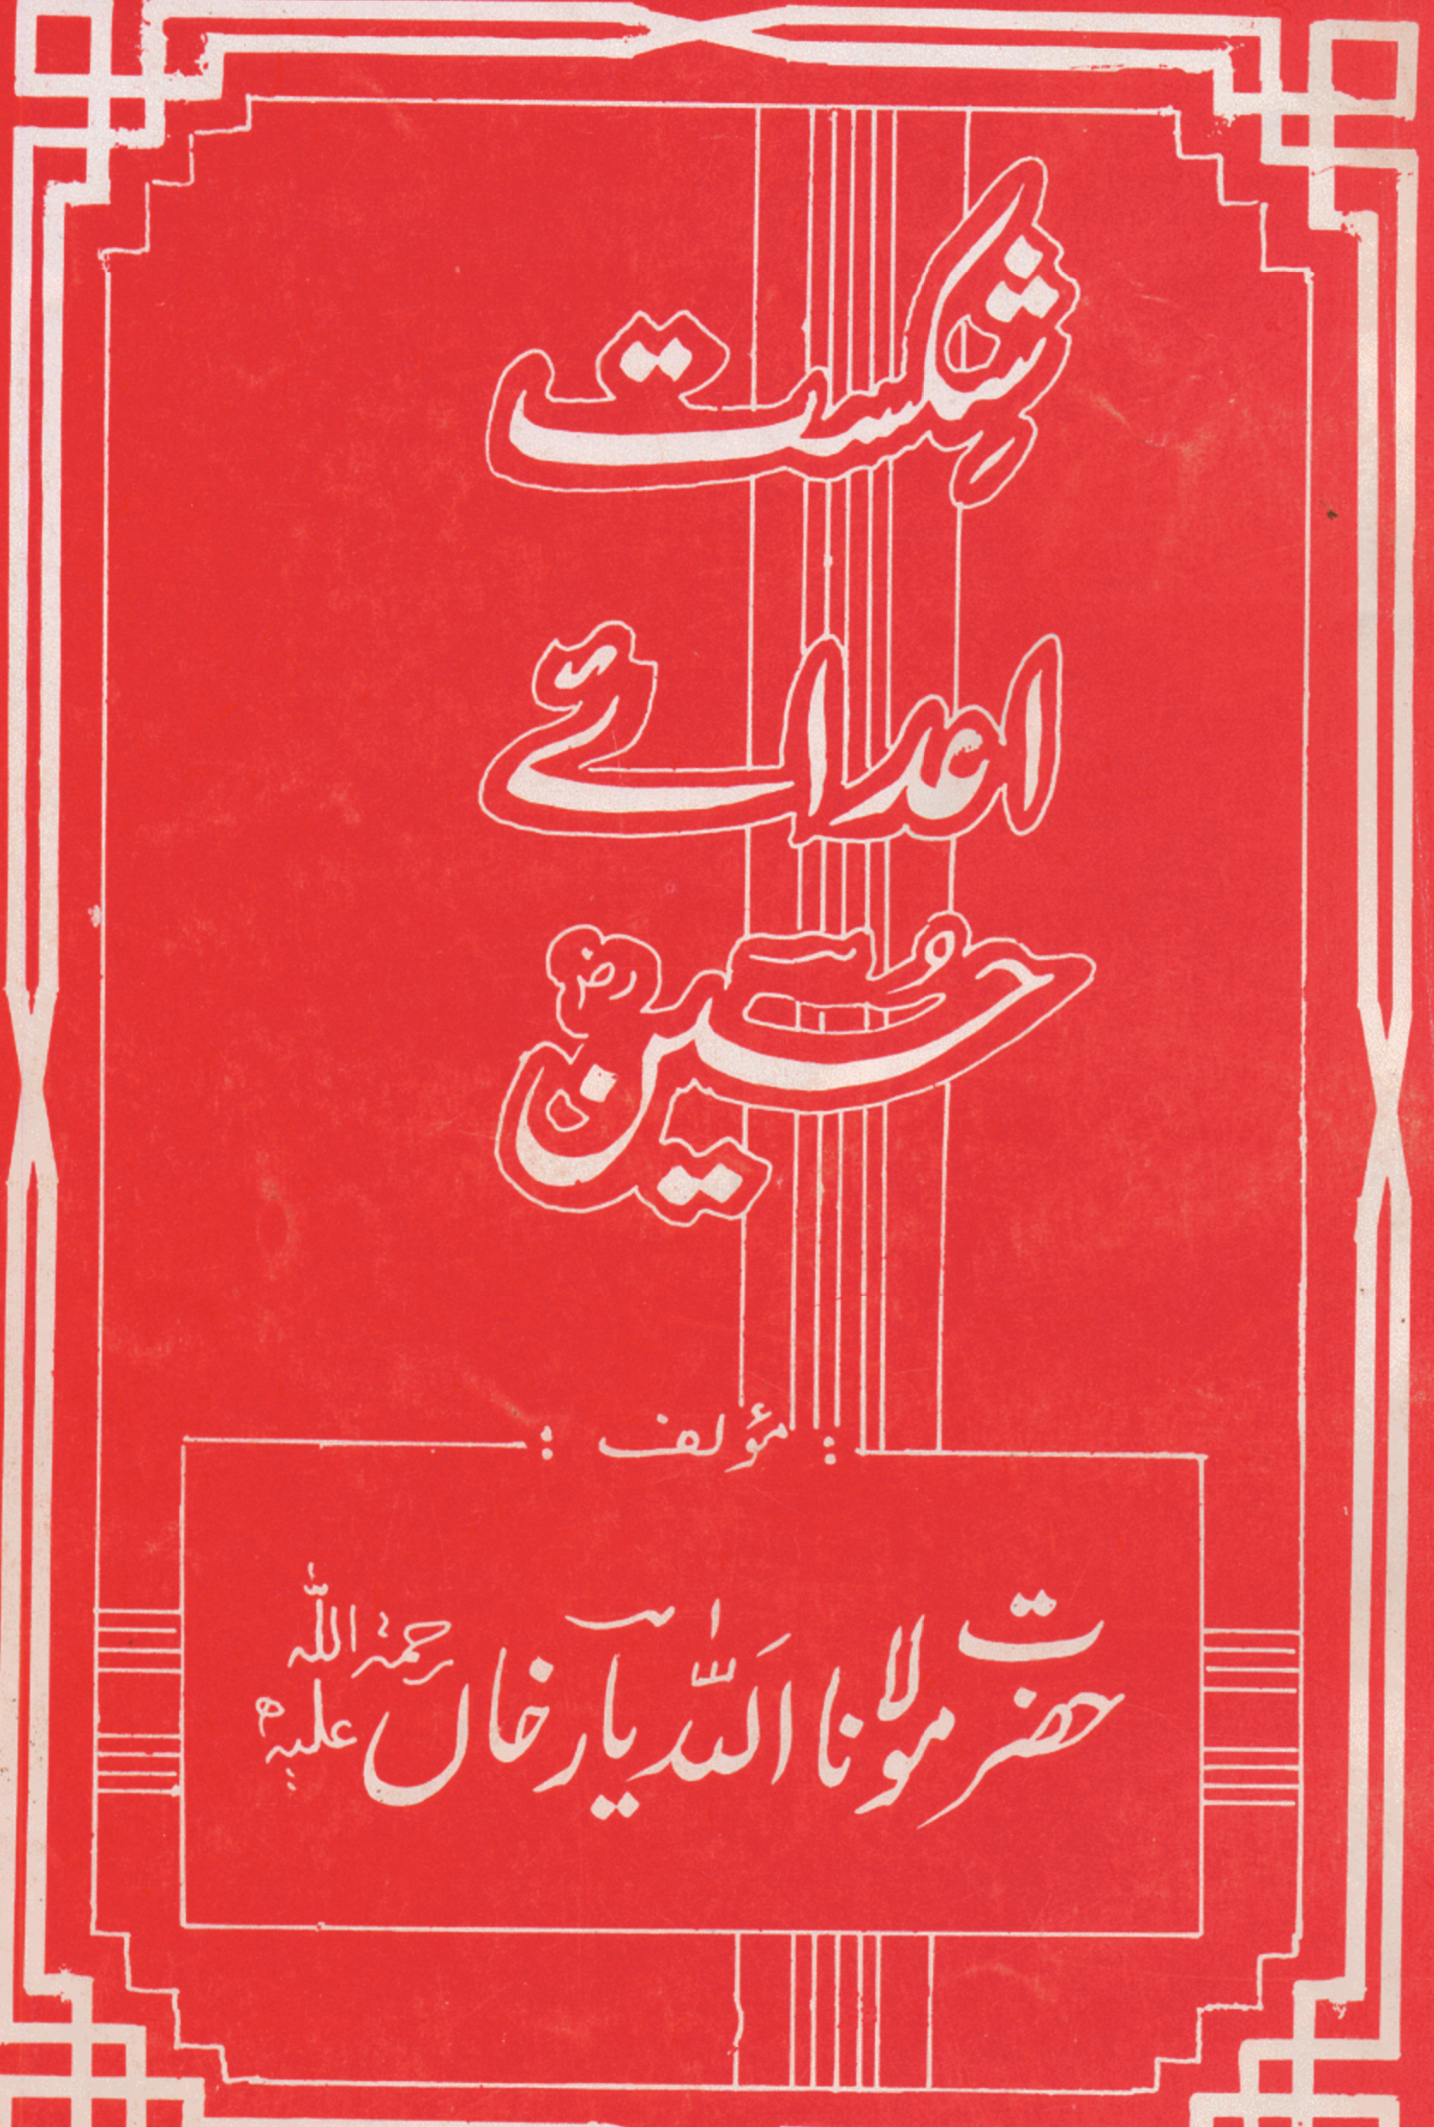 شِکست
اعدائے
حُسین ؓ
: مؤلف :
حضرت مولانا اللہ یار خاں رحمۃ اللہ علیہ